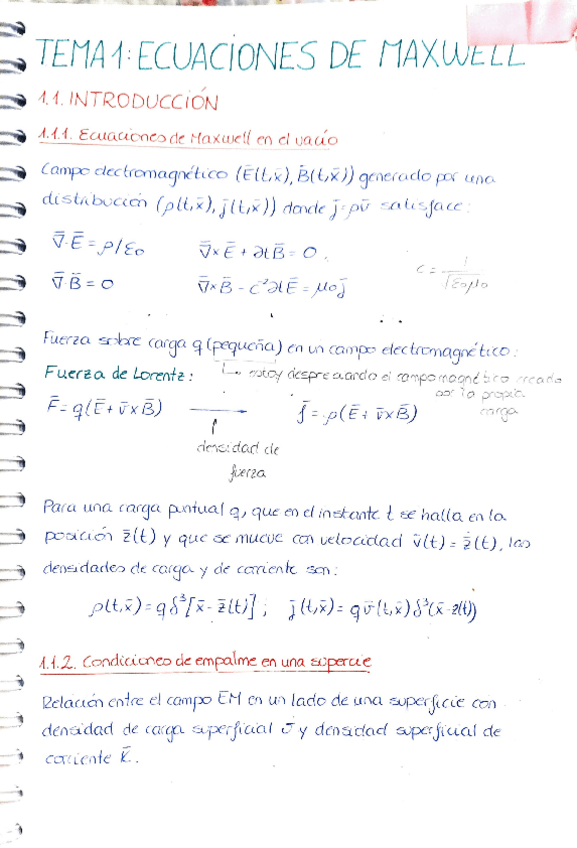 TEMA 1: ECUACIONES DE MAXWELL
1.1. INTRODUCCIÓN
1.1.1. Ecuaciones de Maxwell en el vacío
Campo electromagnético (Ē(t,x̄), B̄(t,x̄)) generado por una
distribución (ρ(t,x̄), j̄(t,x̄)) donde j̄=ρv̄ satisface:
∇̄·Ē = ρ/ε₀   ∇̄×Ē + ∂tB̄ = 0.
c = 1/√ε₀μ₀
∇̄·B̄ = 0   ∇̄×B̄ - c⁻²∂tĒ = μ₀j̄
Fuerza sobre carga q (pequeña) en un campo electromagnético:
Fuerza de Lorentz: ↳ estoy despreciando el campo magnético creado
por la propia
carga
F̄ = q(Ē + v̄×B̄) → f̄ = ρ(Ē + v̄×B̄)
densidad de
fuerza
Para una carga puntual q, que en el instante t se halla en la
posición z̄(t) y que se mueve con velocidad v̄(t) = ż̄(t), las
densidades de carga y de corriente son:
ρ(t,x̄) = q δ³[x̄ - z̄(t)] ; j̄(t,x̄) = q v̄(t,x̄) δ³(x̄-z(t))
1.1.2. Condiciones de empalme en una supercie
Relación entre el campo EM en un lado de una superficie con
densidad de carga superficial σ y densidad superficial de
corriente K̄.